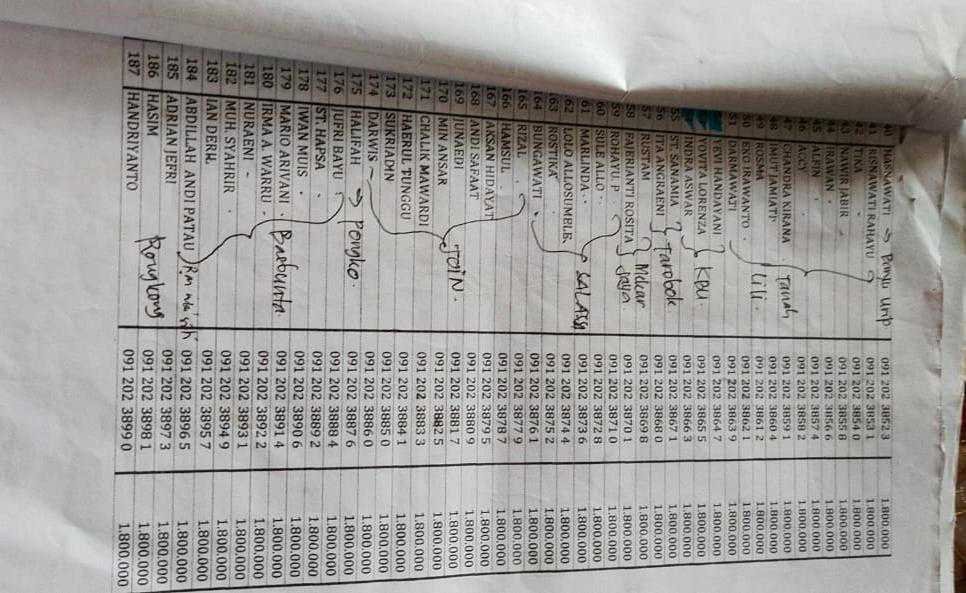 40 MARNAWATI → 091 202 3852 3 1.800.000
41 RISNAWATI RAHAYU 091 202 3853 1 1.800.000
42 TIKA 091 202 3854 0 1.800.000
43 NAWIR JABIR 091 202 3855 8 1.800.000
44 IRAWAN 091 202 3856 6 1.800.000
45 ALFIN 091 202 3857 4 1.800.000
46 ACCY 091 202 3858 2 1.800.000
47 CHANDRA KIRANA Tanah 091 202 3859 1 1.800.000
48 IMUT JAMIATI 091 202 3860 4 1.800.000
49 ROSMA 091 202 3861 2 1.800.000
50 EKO IRAWANTO Lili. 091 202 3862 1 1.800.000
51 DARMAWATI 091 202 3863 9 1.800.000
YEVI HANDAYANI 091 202 3864 7 1.800.000
YOVITA LORENZA KPU. 091 202 3865 5 1.800.000
INDRA ASWAR 091 202 3866 3 1.800.000
55 ST. SANAMIA 091 202 3867 1 1.800.000
56 ITA ANGRAENI Tarobok 091 202 3868 0 1.800.000
57 RUSTAM Mekar 091 202 3869 8 1.800.000
58 FAJERIANTI ROSITA Jaya 091 202 3870 1 1.800.000
59 ROHATU. P 091 202 3871 0 1.800.000
60 SULE ALLO 091 202 3872 8 1.800.000
61 MARLINDA SALASSA 091 202 3873 6 1.800.000
62 LOLO ALLOSUMPLE 091 202 3874 4 1.800.000
63 ROSTIKA 091 202 3875 2 1.800.000
164 BUNGAWATI 091 202 3876 1 1.800.000
165 RIZAL 091 202 3877 9 1.800.000
166 HAMSUL 091 202 3878 7 1.800.000
167 AKSAN HIDAYAT 091 202 3879 5 1.800.000
168 ANDI SAFAAT 091 202 3880 9 1.800.000
169 JUNAEDI TOIN. 091 202 3881 7 1.800.000
170 MIN ANSAR 091 202 3882 5 1.800.000
171 CHALIK MAWARDI 091 202 3883 3 1.800.000
172 HAERUL TUNGGU 091 202 3884 1 1.800.000
173 SUKRIADMN 091 202 3885 0 1.800.000
174 DARWIS 091 202 3886 0 1.800.000
175 HALIFAH → Pongko. 091 202 3887 6 1.800.000
176 JUFRI BAYU 091 202 3888 4 1.800.000
177 ST. HAPSA 091 202 3889 2 1.800.000
178 IWAN MUIS 091 202 3890 6 1.800.000
179 MARIO ARIVANI Baebunta 091 202 3891 4 1.800.000
180 IRMA A. WARRU 091 202 3892 2 1.800.000
181 NURAENI 091 202 3893 1 1.800.000
182 MUH. SYAHRIR 091 202 3894 9 1.800.000
183 IAN DERH. 091 202 3895 7 1.800.000
184 ABDILLAH ANDI PATAU 091 202 3896 5 1.800.000
185 ADRIAN JEFRI 091 202 3897 3 1.800.000
186 HASIM Rongkong 091 202 3898 1 1.800.000
187 HANDRIYANTO 091 202 3899 0 1.800.000